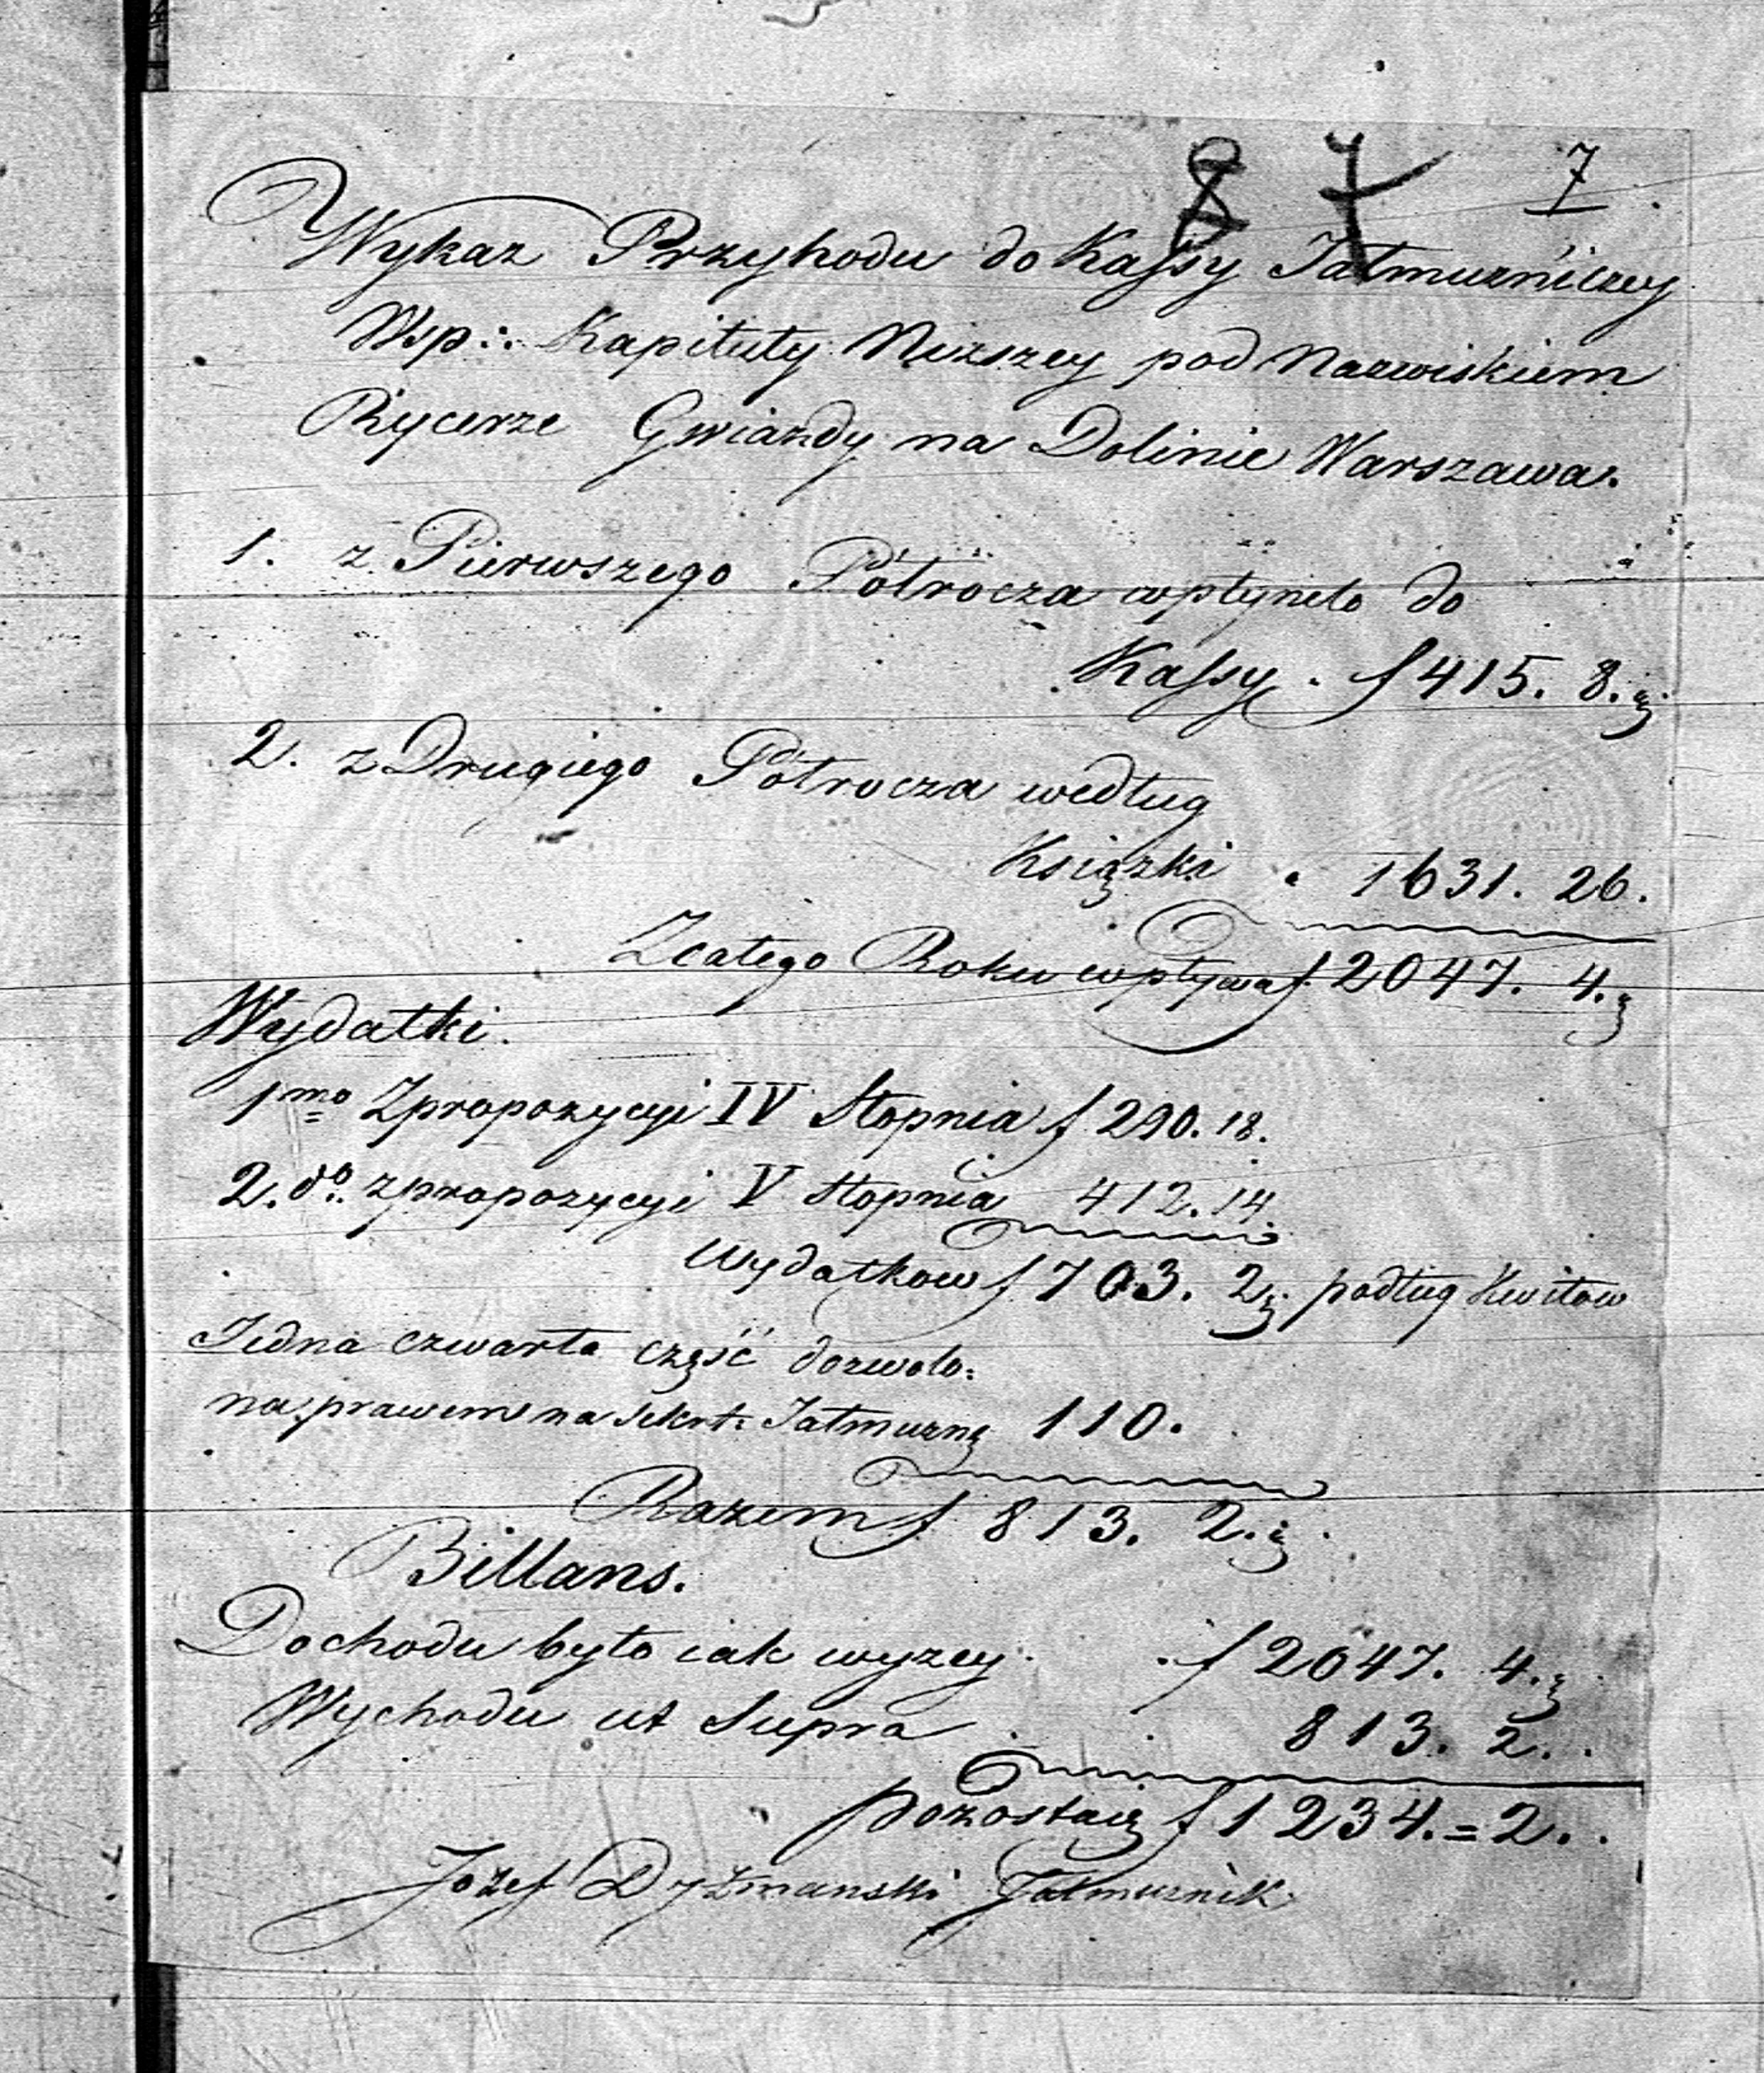 8 7 7
Wykaz Przyhodu do Kassy Jałmużniczey
Wsp: Kapituły Niższey pod Nazwiskiem
Rycerze Gwiazdy na Dolinie Warszawa.
1. z Pierwszego Półrocza wpłyneło do
Kassy . f 415. 8.
2. z Drugiego Półrocza według
Książki . 1631. 26.
Zcałego Roku wpływa f. 2047. 4.
Wydatki.
1mo Zpropozycyi IV Stopnia f 290. 18.
2.do zpropozycyi V Stopnia 412. 14.
Wydatkow f 703. 2 podług Kwitow
Jedna czwarta część dozwolo:
na prawem na sekrt: Jałmużnę 110.
Razem f 813. 2.
Billans.
Dochodu było iak wyzey . f 2047. 4.
Wychodu ut Supra . 813. 2.
pozostaie f 1234. = 2.
Jozef Dyzmanski Jałmużnik